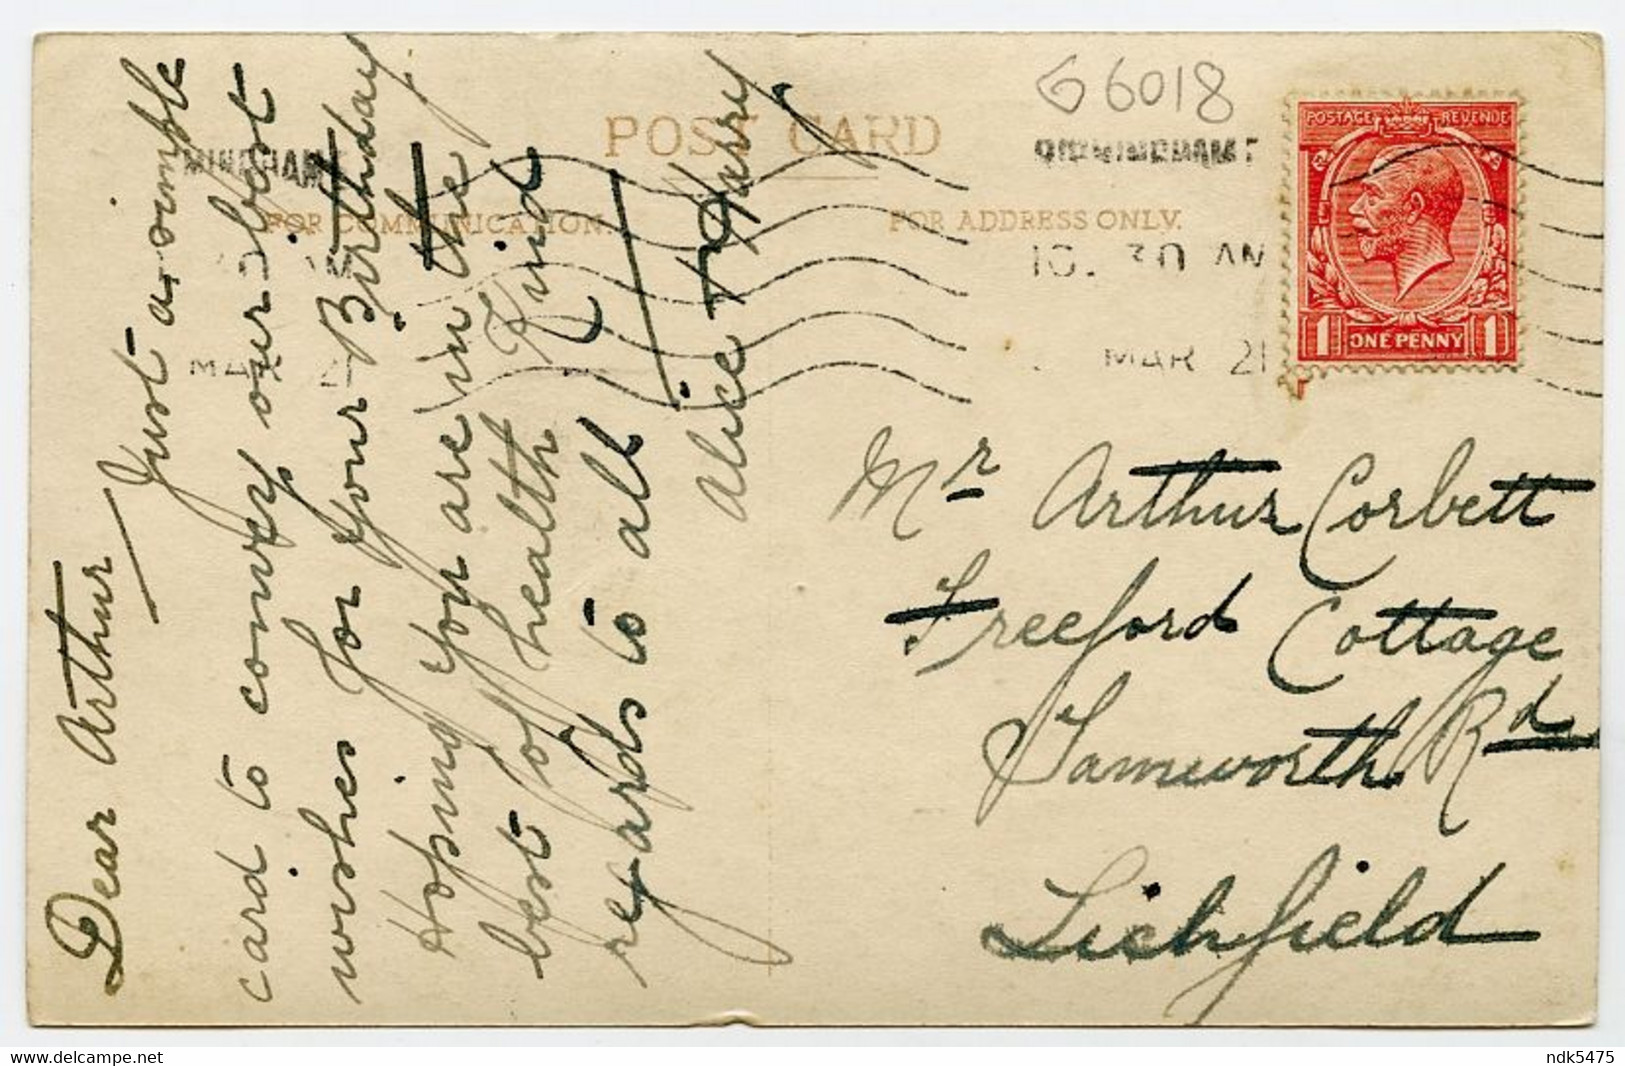 G6018
POST CARD
FOR COMMUNICATION.
FOR ADDRESS ONLY.
MINGHAM
BIRMINGHAM
10.30 AM
AM
MAR 21
MAR 21
POSTAGE REVENUE
1 ONE PENNY 1
Dear Arthur
Just a simple
card to convey our best
wishes for your Birthday
Hoping you are in the
best of health Kind
regards to all
Alice & Harry
Mr Arthur Corbett
Freeford Cottage
Tamworth Rd
Lichfield
ndk5475